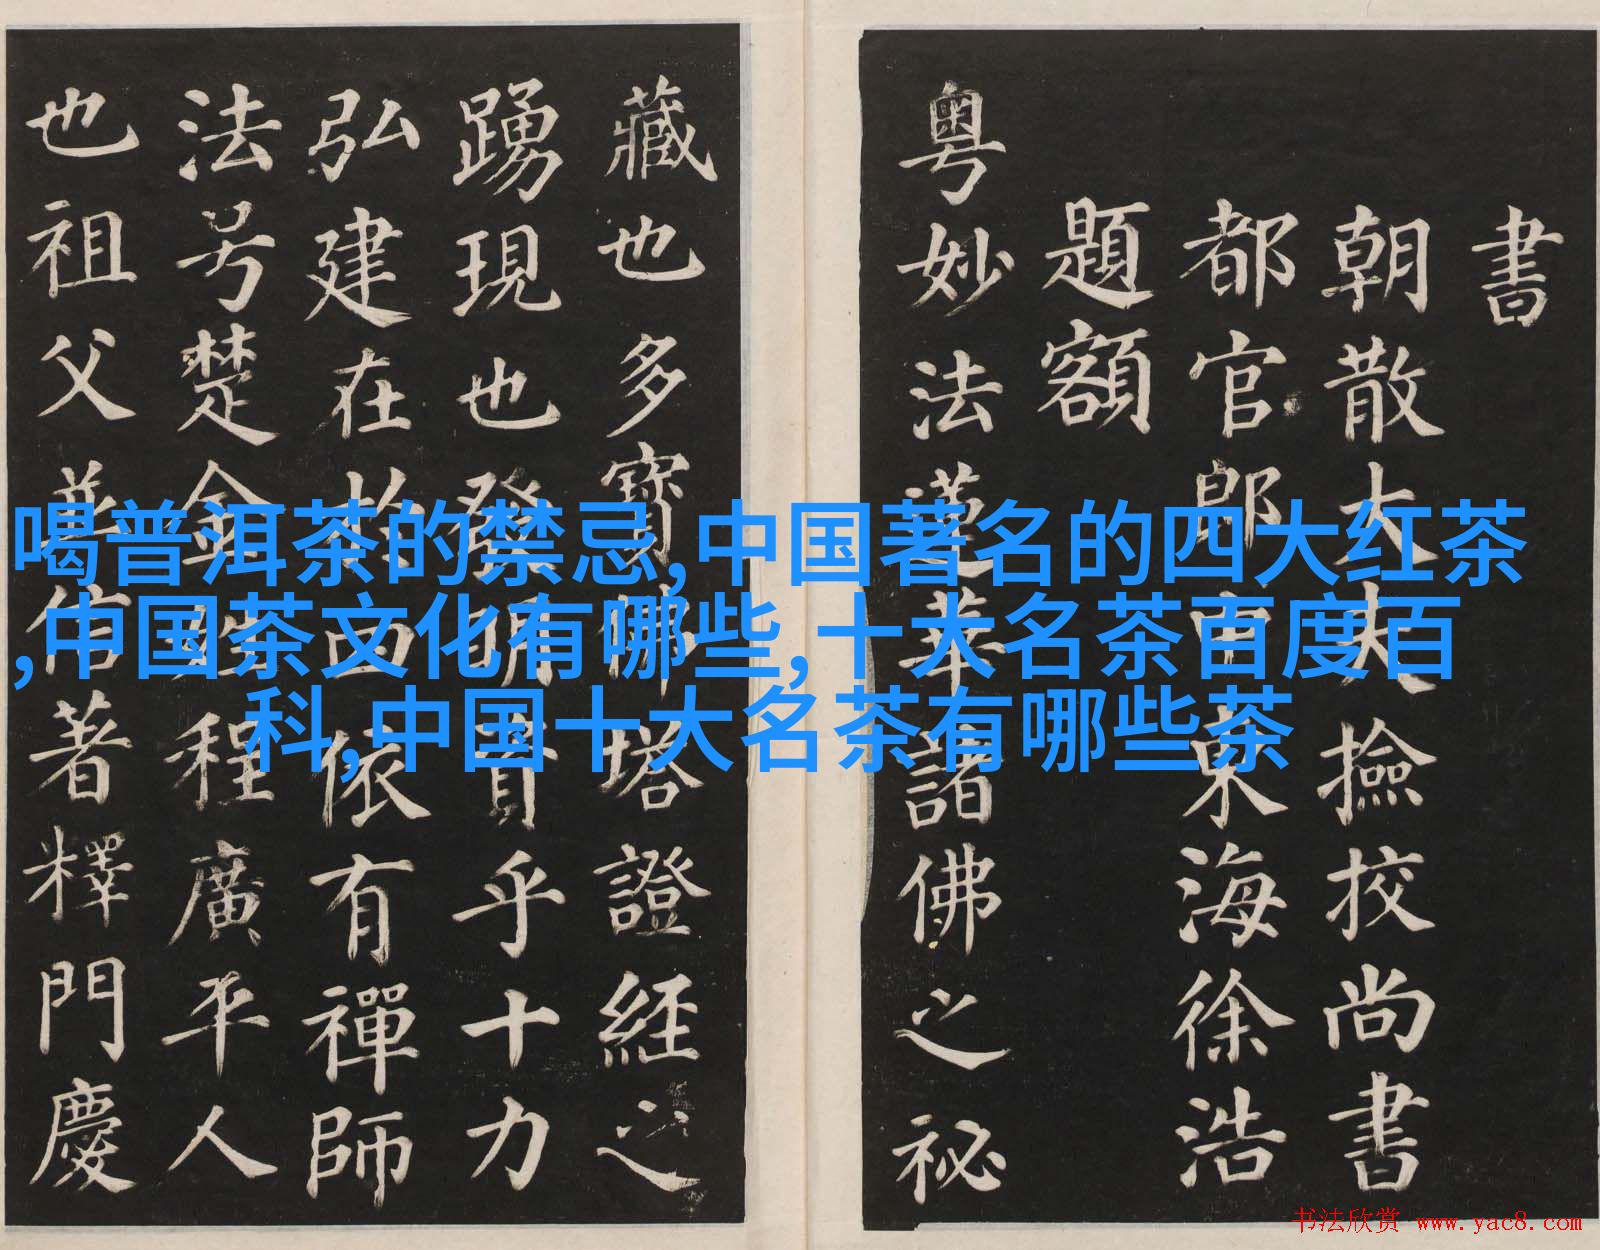 書
朝散大夫撿挍尚書
都官郎中東海徐浩
題額
粤妙法蓮華諸佛之秘
藏也多寶佛塔證經之
踴現也發明資乎十力
弘建在於四依有禪師
法号楚金姓程廣平人
也祖父並信著釋門慶
喝普洱茶的禁忌,中国著名的四大红茶
,中国茶文化有哪些,十大名茶百度百
科,中国十大名茶有哪些茶
书法欣赏 www.yac8.com